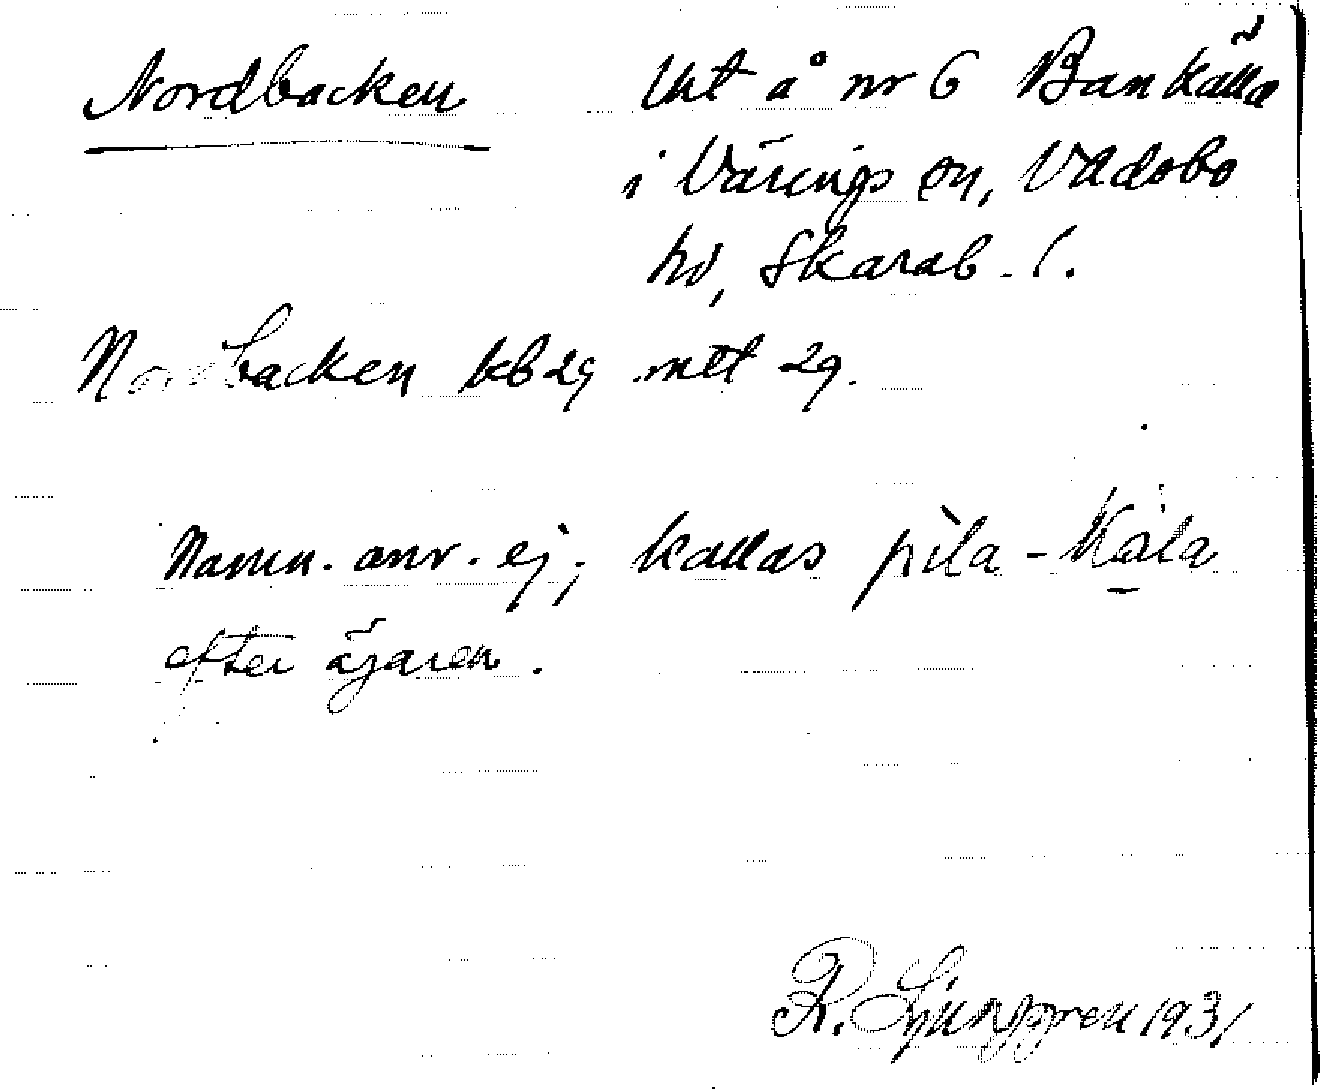 Nordbacken
Utt å nr 6 Bankälla
i Värings sn, Vadsbo
hd, Skarab. l.
Nordbacken kb 29 mtt 29.
Namn. anv. ej; kallas pila-Kala
efter ägaren.
R. Ljunggren 1931